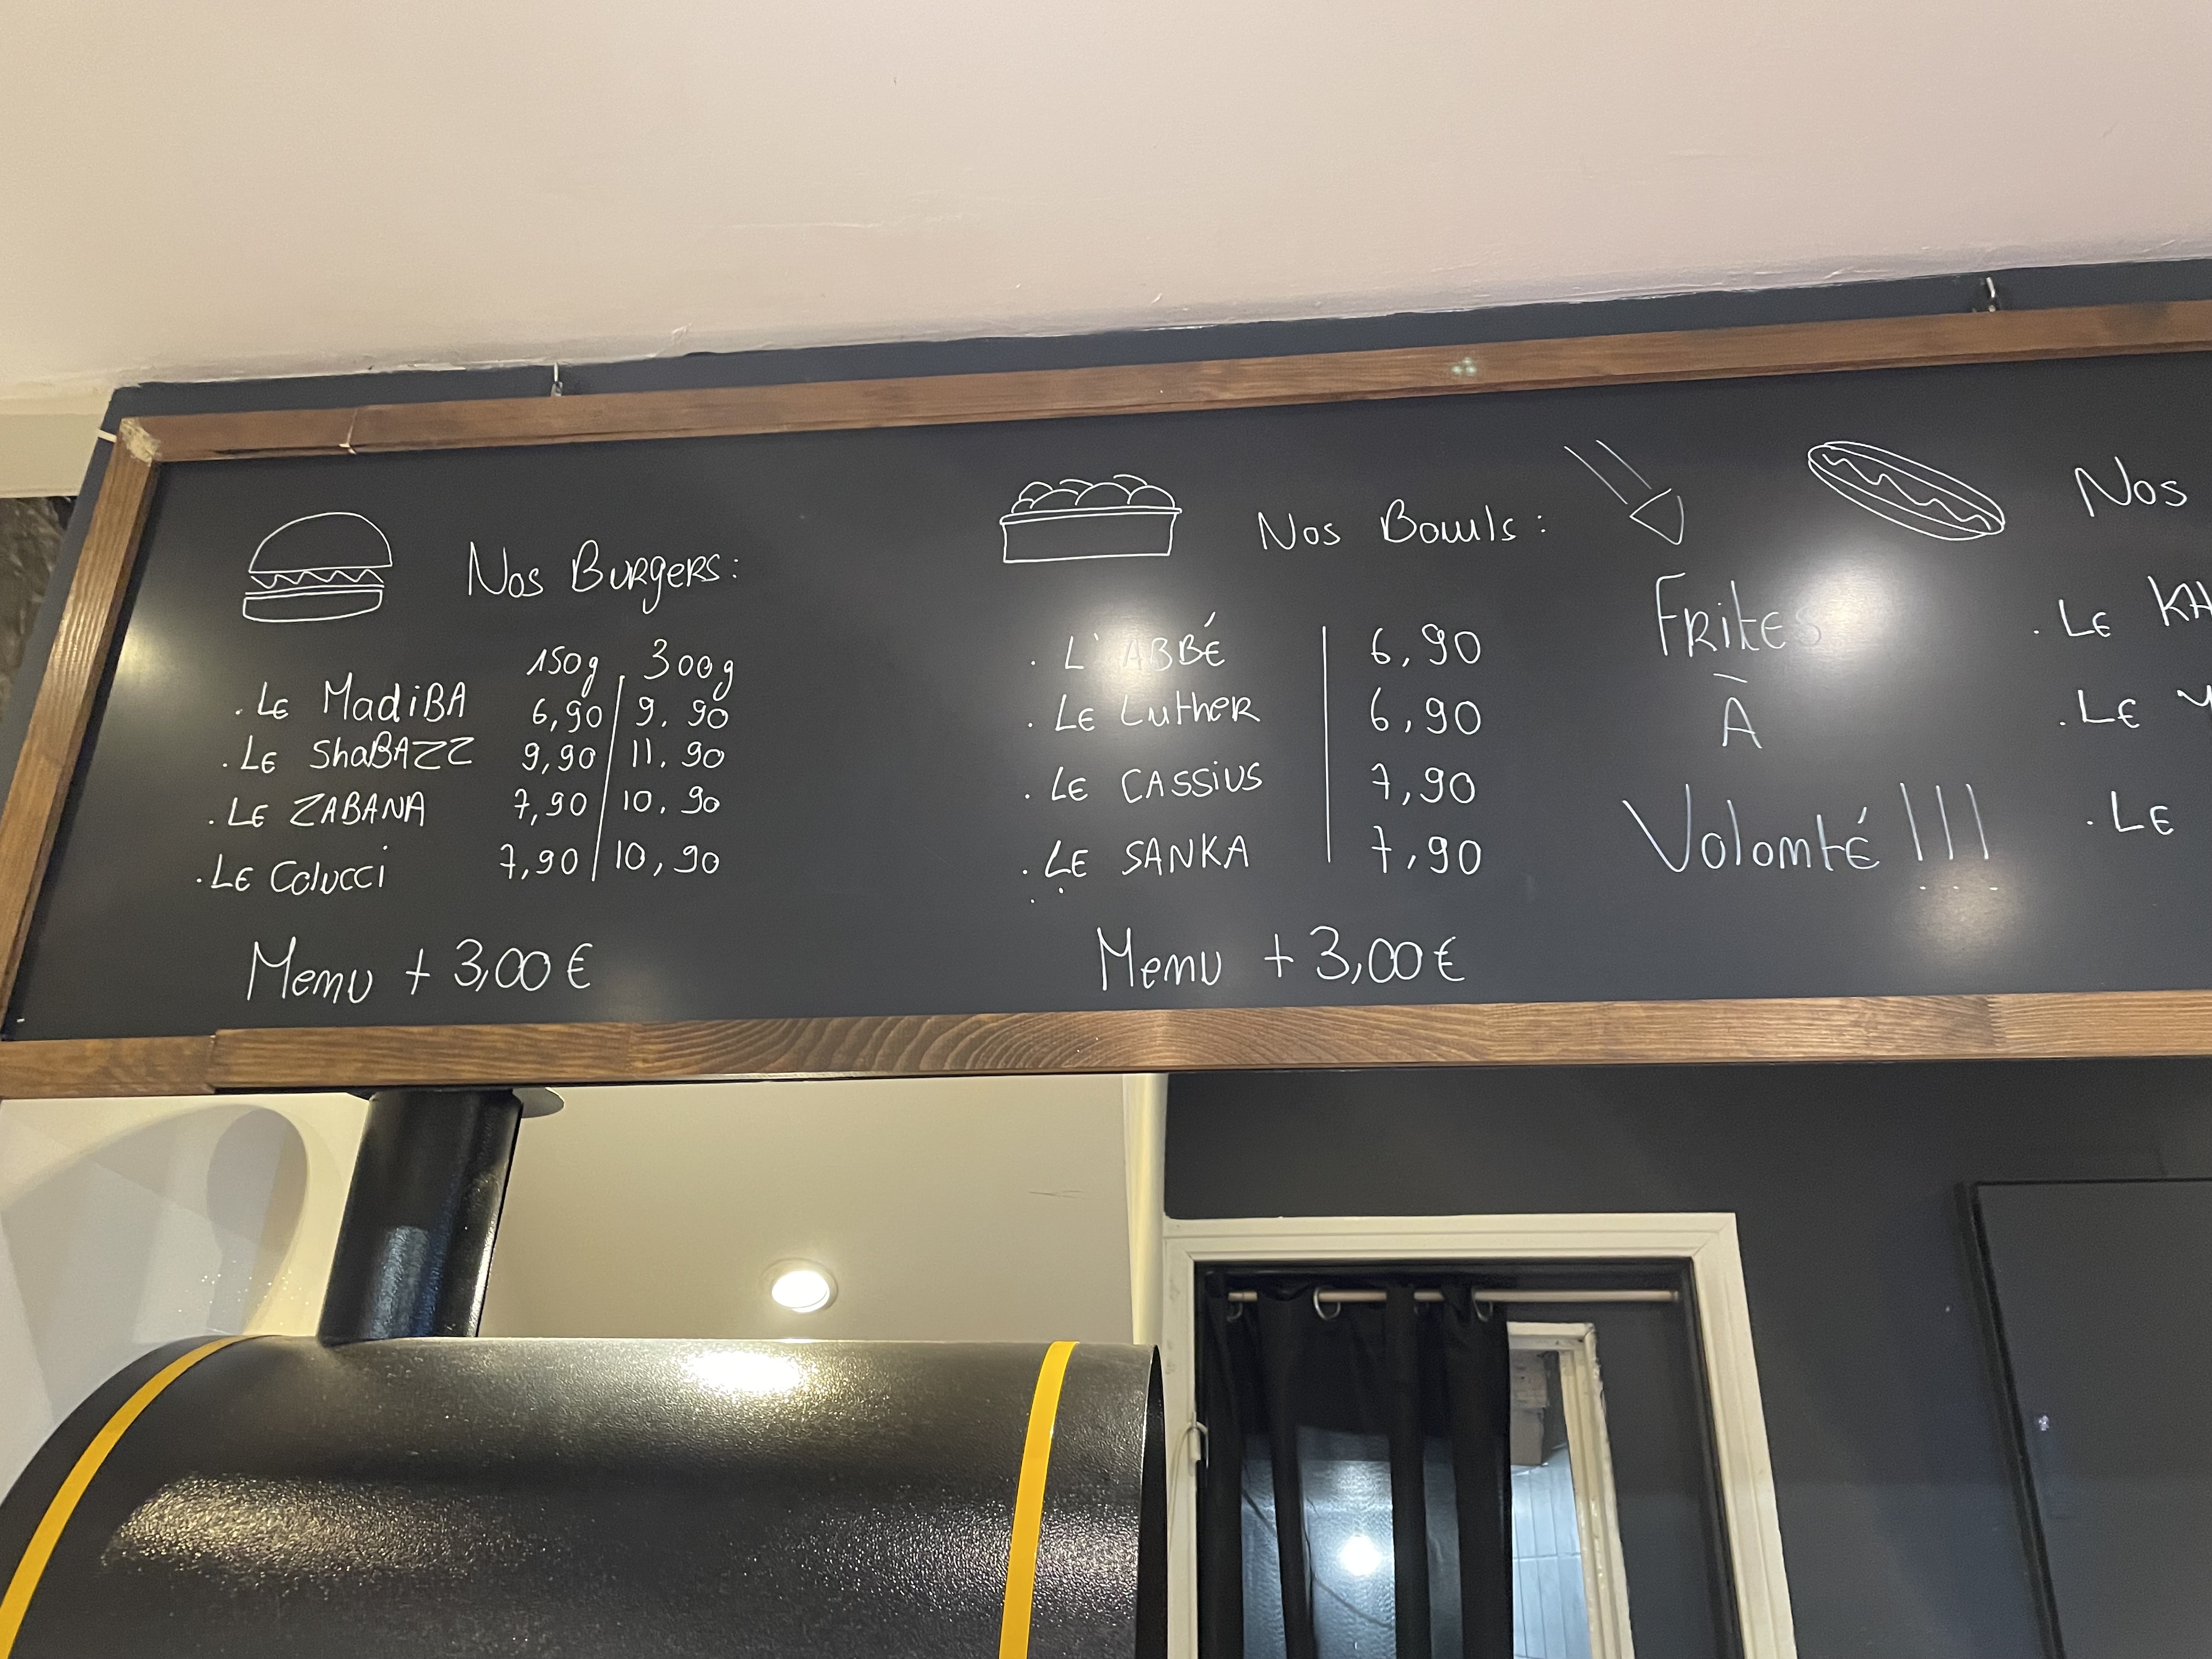 Nos Burgers:
150g 300g
. Le MadiBA 6,90 9.90
. Le ShaBAZZ 9,90 11.90
. Le ZABANA 7,90 10.90
. Le Colucci 7,90 10,90
Menu + 3,00€
Nos Bowls:
. L'ABBÉ 6,90
. Le Luther 6,90
. Le CASSiUS 7,90
. Le SANKA 7,90
Menu + 3,00€
FRites
À
Volonté !!!
Nos
. Le
. Le
. Le